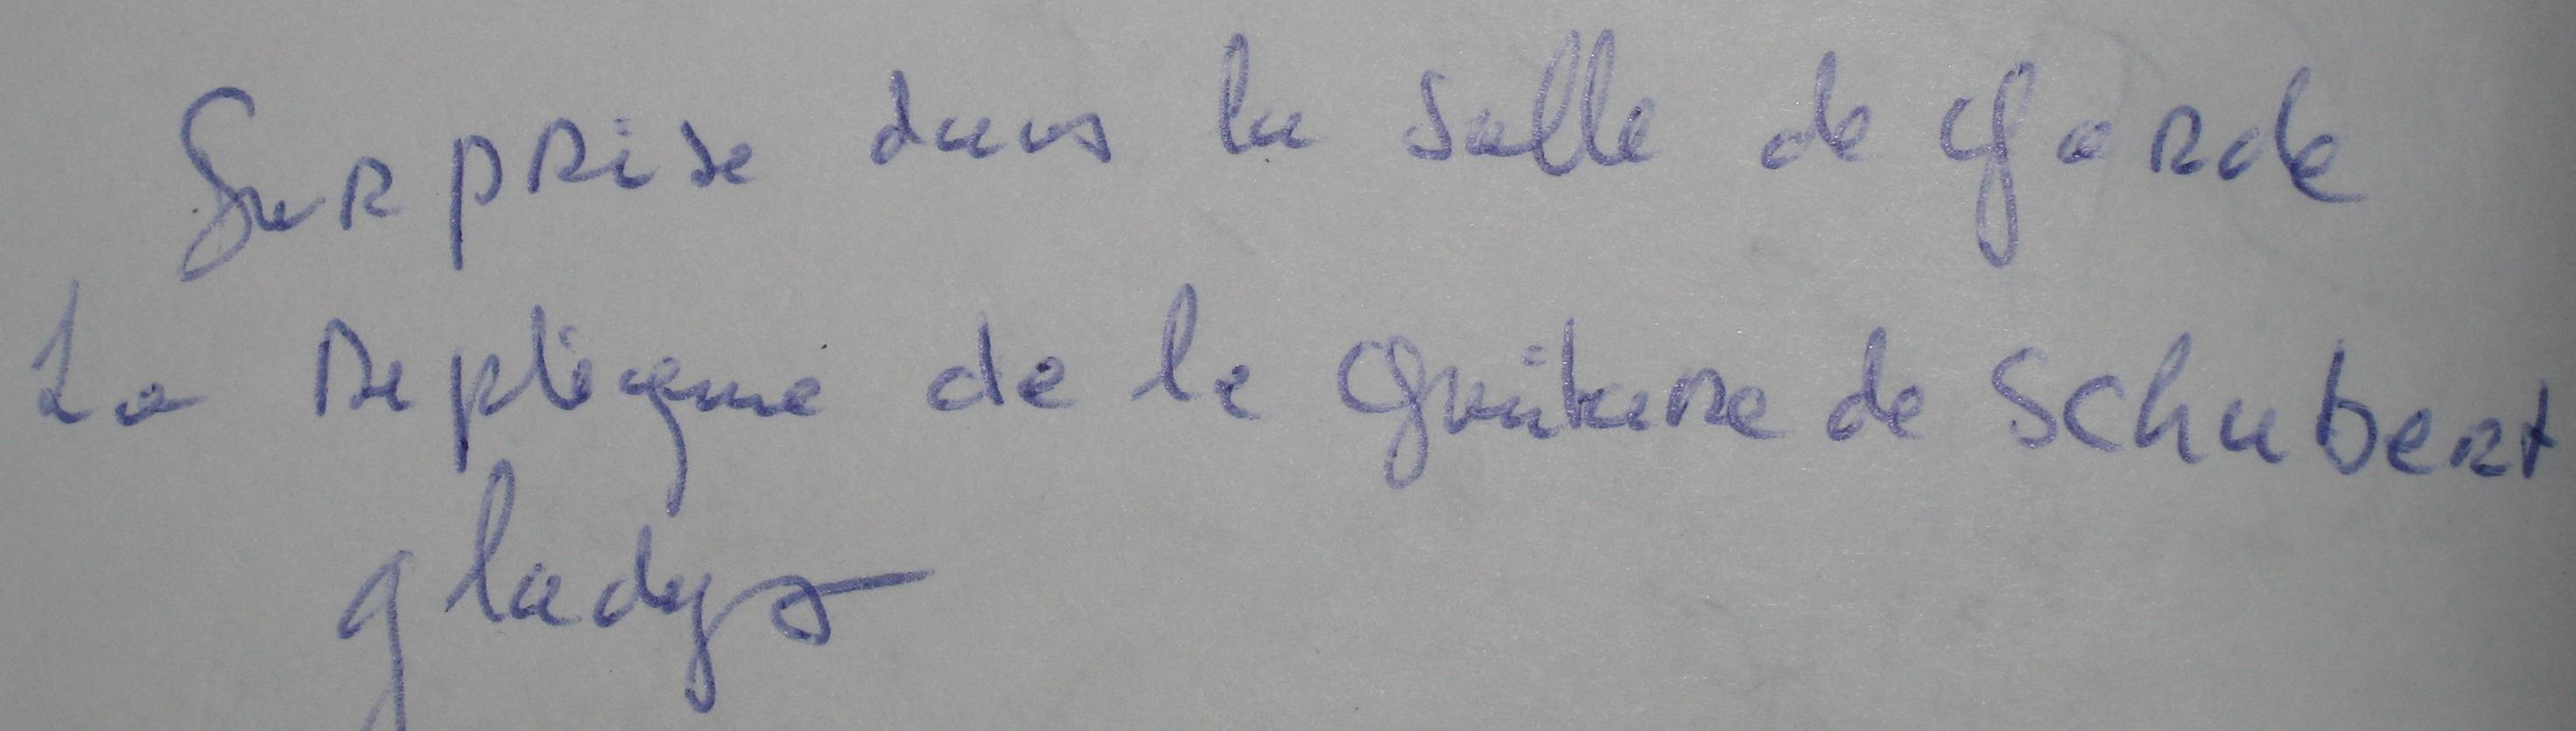 Surprise dans la salle de garde
La replique de la guitare de Schubert
gladys